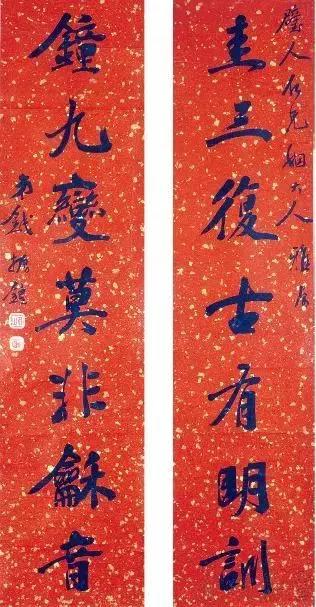 璧人仁兄姻大人雅屬
圭三復古有明訓
鐘九變莫非龢音
弟錢振鍠